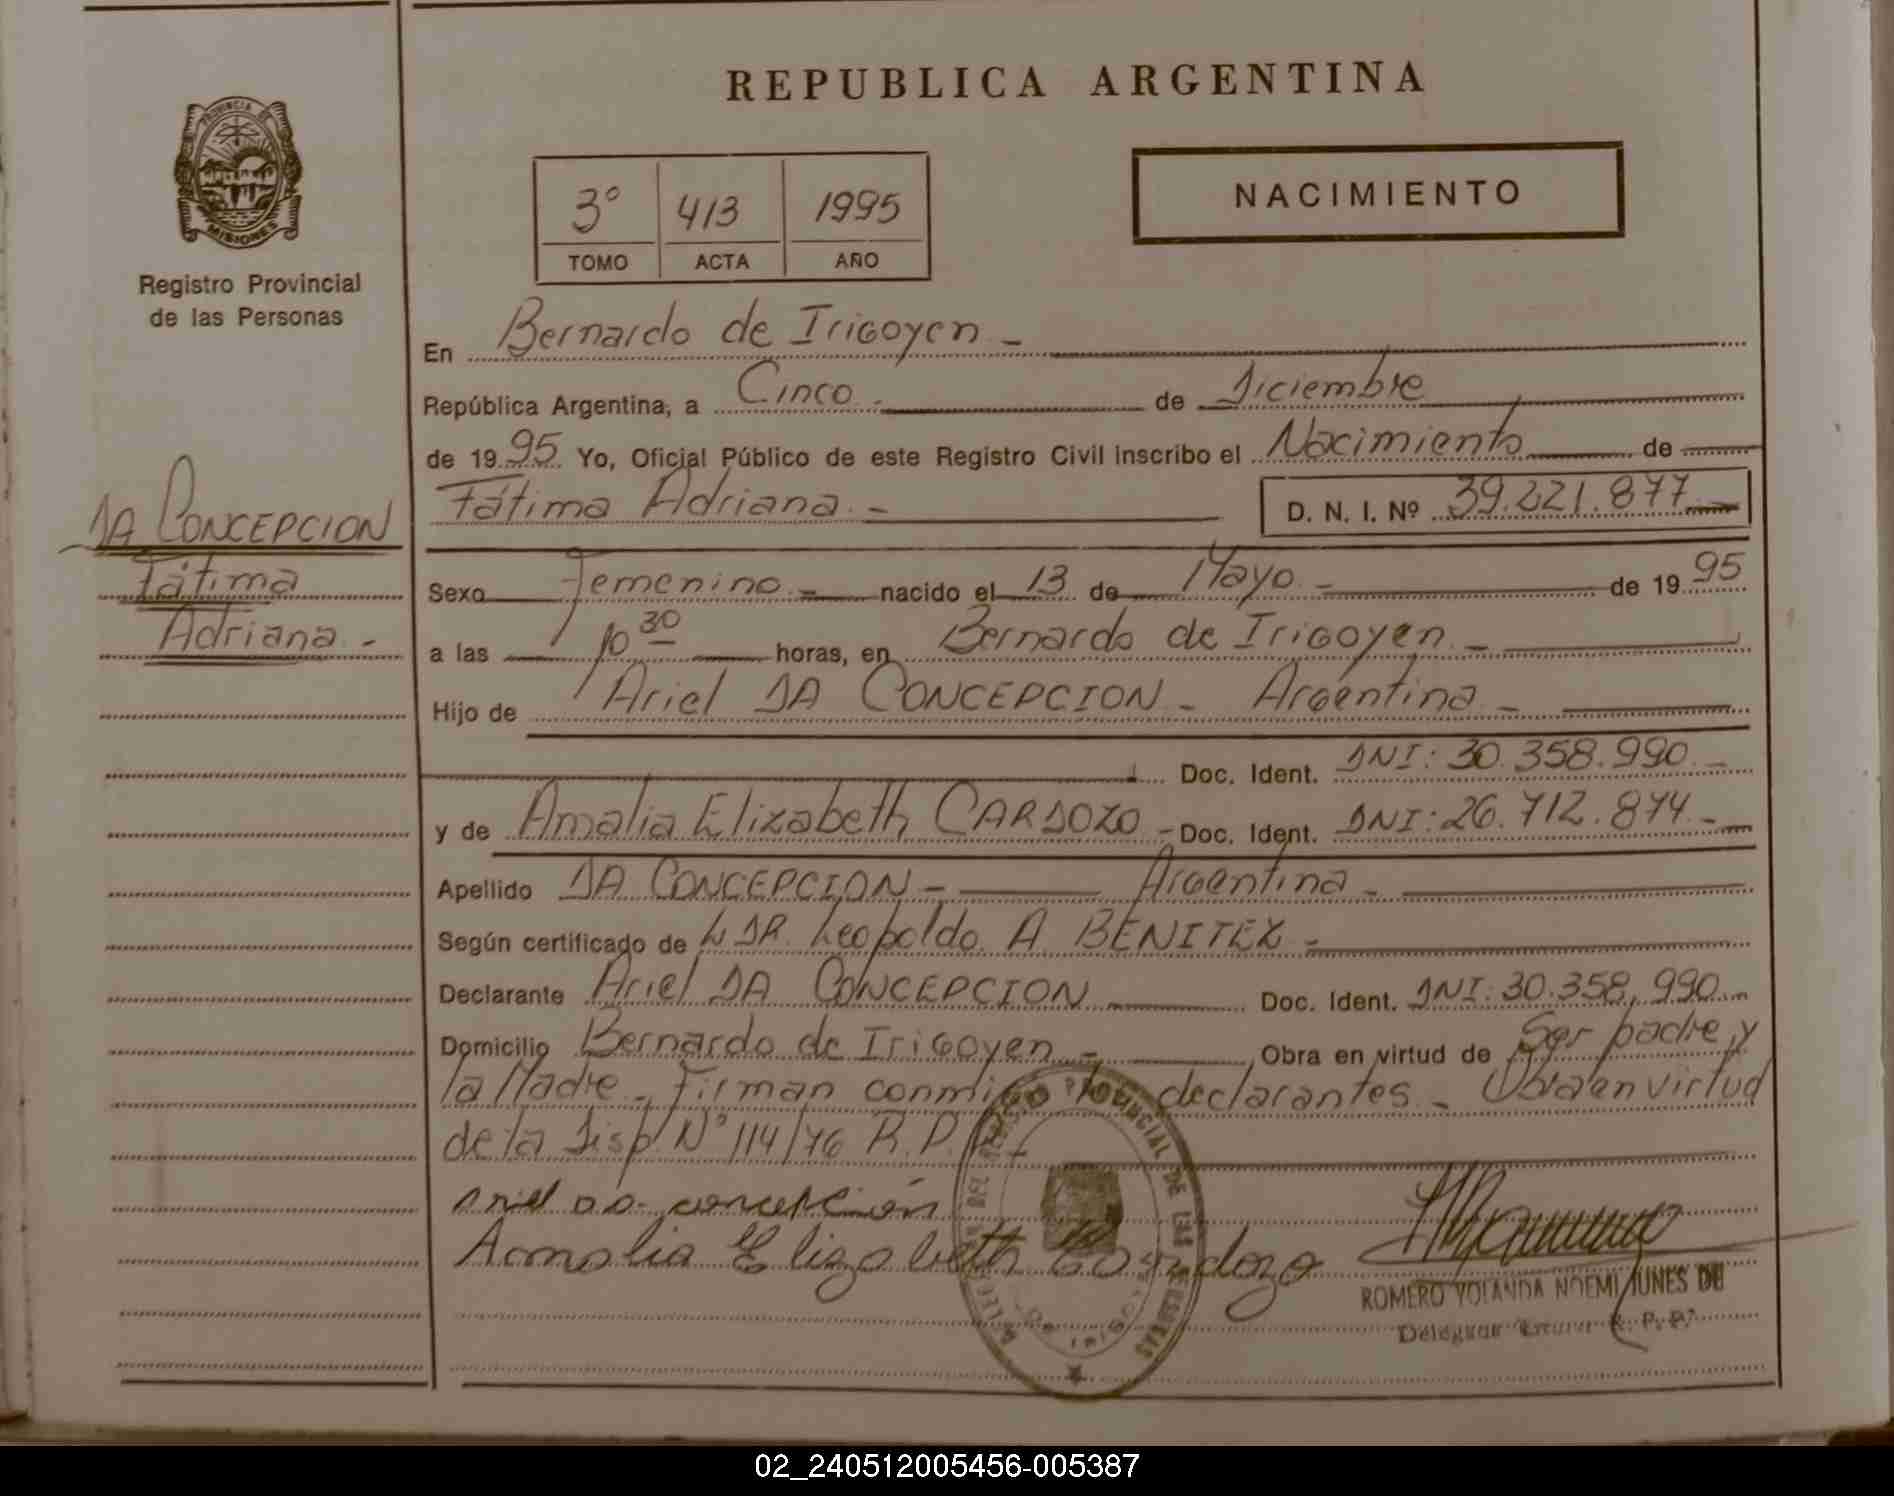 REPUBLICA ARGENTINA
PROVINCIA DE
MISIONES
Registro Provincial
de las Personas
NACIMIENTO
3° 413 1995
TOMO ACTA AÑO
En Bernardo de Irigoyen -
República Argentina, a Cinco - de Diciembre
de 1995 Yo, Oficial Público de este Registro Civil inscribo el Nacimiento de
Fátima Adriana - D. N. I. Nº 39.221.877
DA CONCEPCION
Fátima
Adriana -
Sexo Femenino - nacido el 13 de Mayo - de 1995
a las 10 30 horas, en Bernardo de Irigoyen -
Hijo de Ariel DA CONCEPCION - Argentina -
Doc. Ident. DNI: 30.358.990 -
y de Amalia Elizabeth CARDOZO - Doc. Ident. DNI: 26.712.874 -
Apellido DA CONCEPCION - Argentina -
Según certificado de DR. Leopoldo A BENITEZ -
Declarante Ariel DA CONCEPCION Doc. Ident. DNI: 30.358.990 -
Domicilio Bernardo de Irigoyen - Obra en virtud de Ser padre y
la Madre - Firman conmigo los declarantes - Obra en virtud
de la Disp. Nº 114/76 R.P.P.
Ariel da concepción
Amalia Elizabeth Cardozo
REGISTRO PROVINCIAL DE LAS PERSONAS
ROMERO YOLANDA NOEMI JUNES DE
R. P. P.
02_240512005456-005387